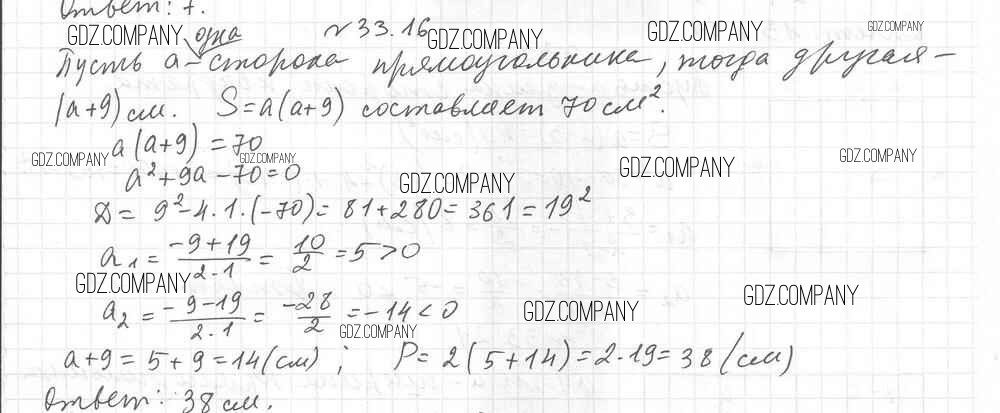 Ответ: 7.
№33.16
Пусть a - одна сторона прямоугольника, тогда другая -
(a+9) см. S=a(a+9) составляет 70 см².
a(a+9)=70
a²+9a-70=0
D= 9²-4·1·(-70)= 81+280= 361= 19²
a₁= (-9+19)/(2·1) = 10/2 =5>0
a₂= (-9-19)/(2·1) = -28/2 =-14<0
a+9= 5+9=14(см) ; P= 2(5+14)=2·19=38(см)
Ответ: 38 см.
GDZ.COMPANY
GDZ.COMPANY
GDZ.COMPANY
GDZ.COMPANY
GDZ.COMPANY
GDZ.COMPANY
GDZ.COMPANY
GDZ.COMPANY
GDZ.COMPANY
GDZ.COMPANY
GDZ.COMPANY
GDZ.COMPANY
GDZ.COMPANY